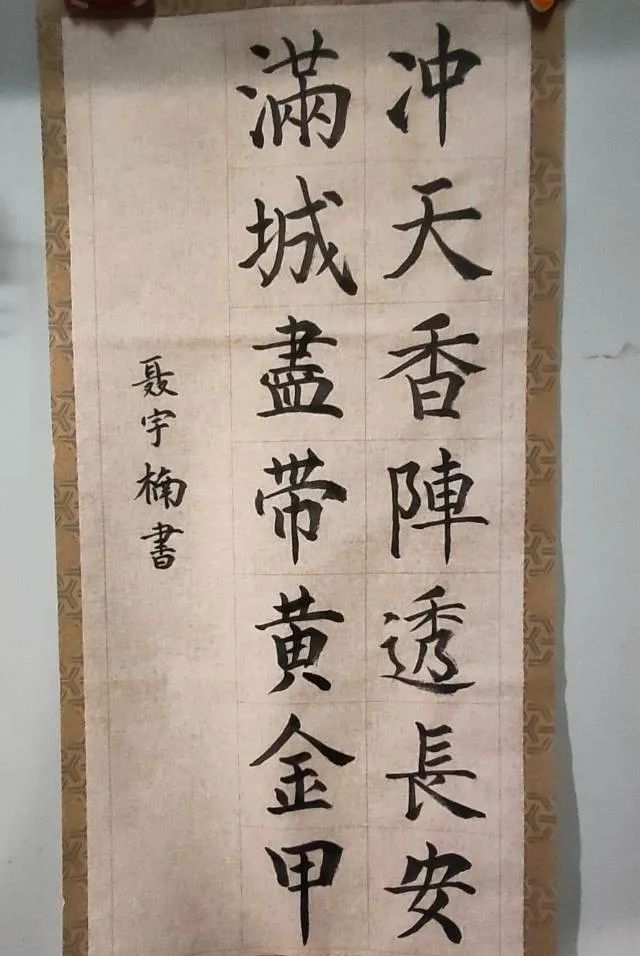 冲天香陣透長安
滿城盡带黄金甲
聂宇楠書